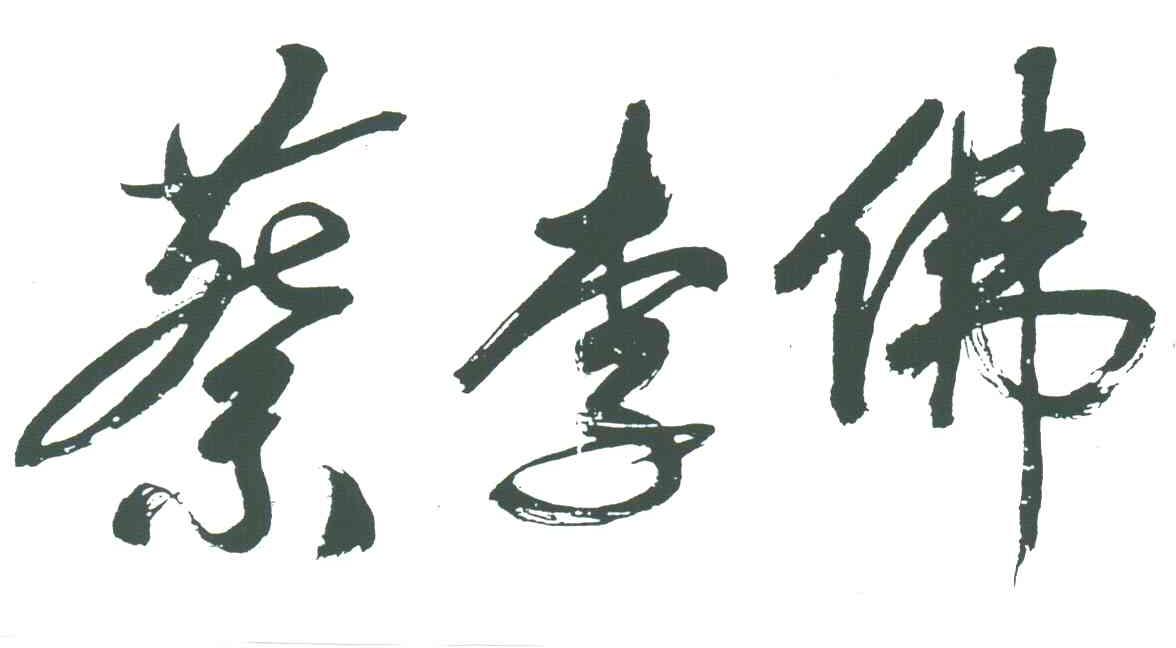 蔡李佛